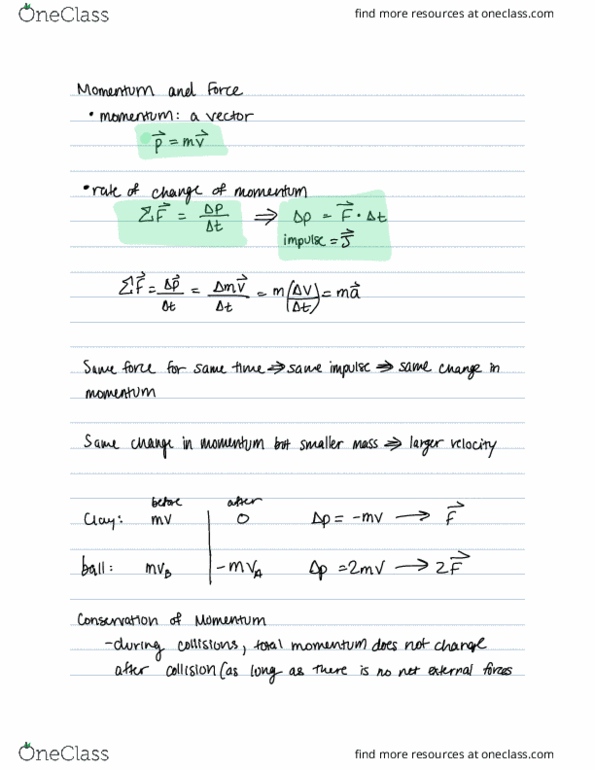 OneClass find more resources at oneclass.com
Momentum and Force
• momentum: a vector
p⃗ = mv⃗
• rate of change of momentum
ΣF⃗ = Δp/Δt ⟹ Δp = F⃗ · Δt
impulse = J⃗
ΣF⃗ = Δp⃗/Δt = Δmv⃗/Δt = m(Δv/Δt) = ma⃗
Same force for same time ⇒ same impulse ⇒ same change in
momentum
Same change in momentum but smaller mass ⇒ larger velocity
before after
Clay: mv 0 Δp = -mv → F⃗
ball: mv_B -mv_A Δp = 2mv → 2F⃗
Conservation of Momentum
-during collisions, total momentum does not change
after collision (as long as there is no net external forces
OneClass find more resources at oneclass.com